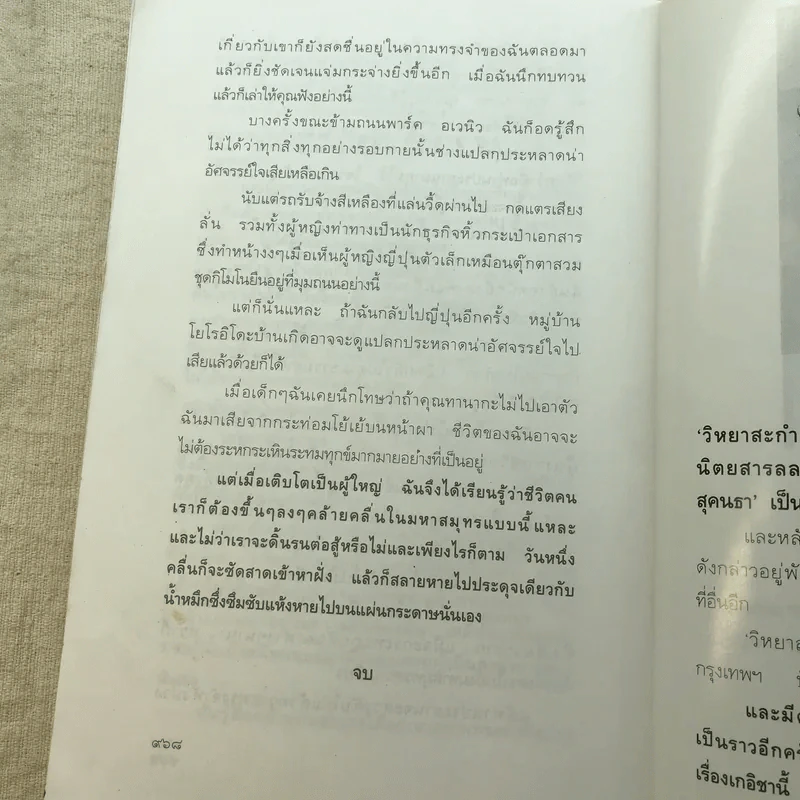 เกี่ยวกับเขาก็ยังสดชื่นอยู่ในความทรงจำของฉันตลอดมา
แล้วก็ยิ่งชัดเจนแจ่มกระจ่างยิ่งขึ้นอีก เมื่อฉันนึกทบทวน
แล้วก็เล่าให้คุณฟังอย่างนี้
บางครั้งขณะข้ามถนนพาร์ค อเวนิว ฉันก็อดรู้สึก
ไม่ได้ว่าทุกสิ่งทุกอย่างรอบกายนั้นช่างแปลกประหลาดน่า
อัศจรรย์ใจเสียเหลือเกิน
นับแต่รถรับจ้างสีเหลืองที่แล่นวี้ดผ่านไป กดแตรเสียง
ลั่น รวมทั้งผู้หญิงท่าทางเป็นนักธุรกิจหิ้วกระเป๋าเอกสาร
ซึ่งทำหน้างงๆเมื่อเห็นผู้หญิงญี่ปุ่นตัวเล็กเหมือนตุ๊กตาสวม
ชุดกิโมโนยืนอยู่ที่มุมถนนอย่างนี้
แต่ก็นั่นแหละ ถ้าฉันกลับไปญี่ปุ่นอีกครั้ง หมู่บ้าน
โยโรอิโดะบ้านเกิดอาจจะดูแปลกประหลาดน่าอัศจรรย์ใจไป
เสียแล้วด้วยก็ได้
เมื่อเด็กๆฉันเคยนึกโทษว่าถ้าคุณทานากะไม่ไปเอาตัว
ฉันมาเสียจากกระท่อมโย้เย้บนหน้าผา ชีวิตของฉันอาจจะ
ไม่ต้องระหกระเหินระทมทุกข์มากมายอย่างที่เป็นอยู่
แต่เมื่อเติบโตเป็นผู้ใหญ่ ฉันจึงได้เรียนรู้ว่าชีวิตคน
เราก็ต้องขึ้นๆลงๆคล้ายคลื่นในมหาสมุทรแบบนี้แหละ
และไม่ว่าเราจะดิ้นรนต่อสู้หรือไม่และเพียงไรก็ตาม วันหนึ่ง
คลื่นก็จะซัดสาดเข้าหาฝั่ง แล้วก็สลายหายไปประดุจเดียวกับ
น้ำหมึกซึ่งซึมซับแห้งหายไปบนแผ่นกระดาษนั่นเอง
จบ
๙๖๘
'วิหยาสะกำ
นิตยสารลล
สุคนธา' เป็น
และหลั
ดังกล่าวอยู่พั
ที่อื่นอีก
'วิหยาส
กรุงเทพฯ
และมี
เป็นราวอีกคร
เรื่องเกอิชานี้